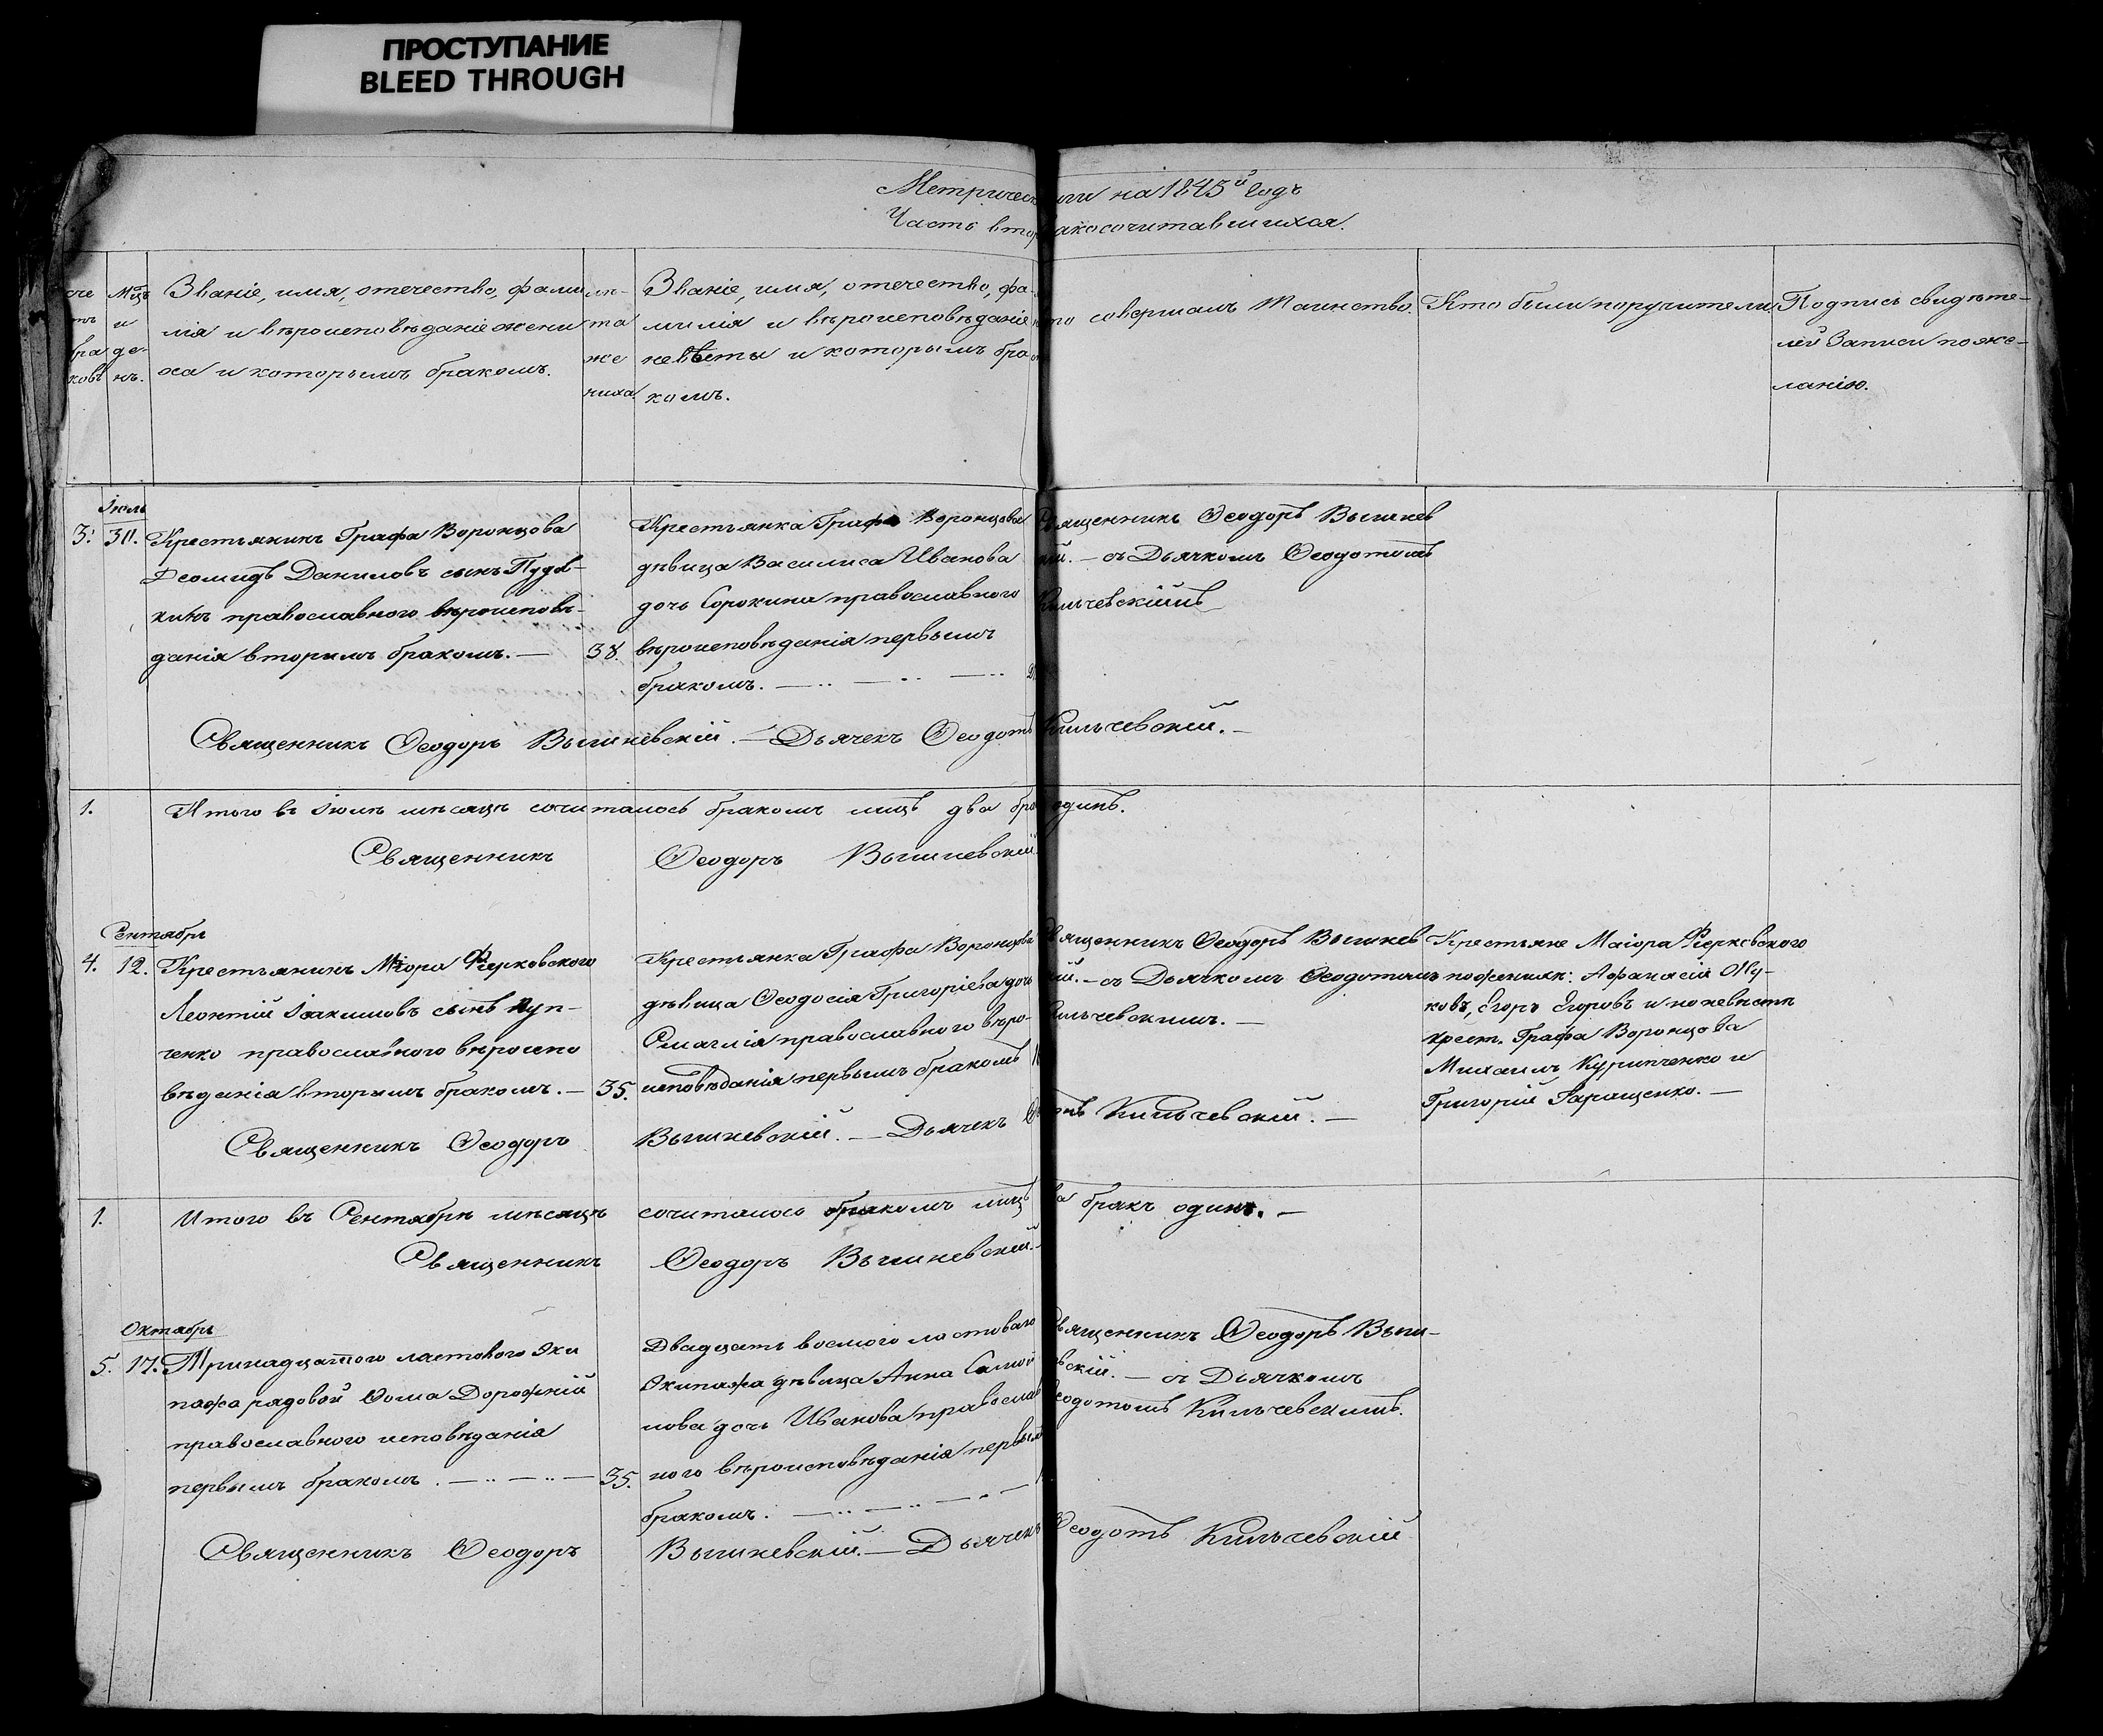 ПРОСТУПАНИЕ
BLEED THROUGH
Метричес иги на 1845й годъ
Часть втор акосочитавшихся.
сче
тъ
бра
ковъ
Мцъ
и
де-
нь.
Званіе, имя, отечество, фами
лія и вѣроисповѣданіе жени
ха и которымъ бракомъ.
лѣ-
та
же
ниха.
Званіе, имя, отечество, фа-
милія и вѣроисповѣданіе
невѣсты и которымъ бра
комъ.
то совершалъ Таинство.
Кто были поручители.
Подпись свидѣте-
лей Записи по же-
ланію.
Іюль
3. 30. Крестьянинъ Графа Воронцова
Феомидъ Даниловъ сынъ
православнаго вѣроисповѣ-
данія вторымъ бракомъ. — 38.
Крестьянка Графа Воронцова
дѣвица Василиса Иванова
дочь Сорокина православнаго
вѣроисповѣданія первымъ
бракомъ.
вященникъ Ѳеодоръ Вышнев
кій. — съ Дьячкомъ Ѳеодотомъ
Кильчевскімъ
Священникъ Ѳеодоръ Вышневскій. — Дьячекъ Ѳеодотъ Кильчевскій. —
1. Итого въ Іюлѣ мѣсяцѣ сочиталось бракомъ лицъ два бра одинъ.
Священникъ Ѳеодоръ Вышневскій.
Сентябрь
4. 12. Крестьянинъ Маіора Ферковского
Леонтій Іоакимовъ сынъ Куп-
ченко православного вѣроиспо
вѣданія вторымъ бракомъ. — 35.
Крестьянка Графа Воронцова
дѣвица Ѳеодосія Григоріева дочь
Смаглія православного вѣро-
исповѣданія первымъ бракомъ
вященникъ Ѳеодоръ Вышнев
кій. — съ Дьячкомъ Ѳеодотомъ
Кильчевскимъ. —
Крестьяне Маіора Ферковского
по женихѣ: Афанасій Жу-
ковъ, Егоръ Егоровъ и по невѣстѣ
крест. Графа Воронцова
Михаилъ Курипченко и
Григорій Таращенко. —
Священникъ Ѳеодоръ Вышневскій. — Дьячекъ Ѳе отъ Кильчевскій. —
1. Итого въ Сентябрѣ мѣсяцѣ сочиталось бракомъ лицъ ва бракъ одинъ. —
Священникъ Ѳеодоръ Вышневскій. —
Октябрь
5. 17. Тринадцатого ластового Эки
пажа рядовой Ѳома Дорожній
православного исповѣданія
первымъ бракомъ. — 35.
Двадцать восмого ластоваго
Экипажа дѣвица Анна Самой
лова дочь Иванова православ
ного вѣроисповѣданія первым
бракомъ.
вященникъ Ѳеодоръ Выш-
вскій. — съ Дьячкомъ
Ѳеодотомъ Кильчевскимъ.
Священникъ Ѳеодоръ Вышневскій. — Дьячекъ Ѳеодотъ Кильчевскій